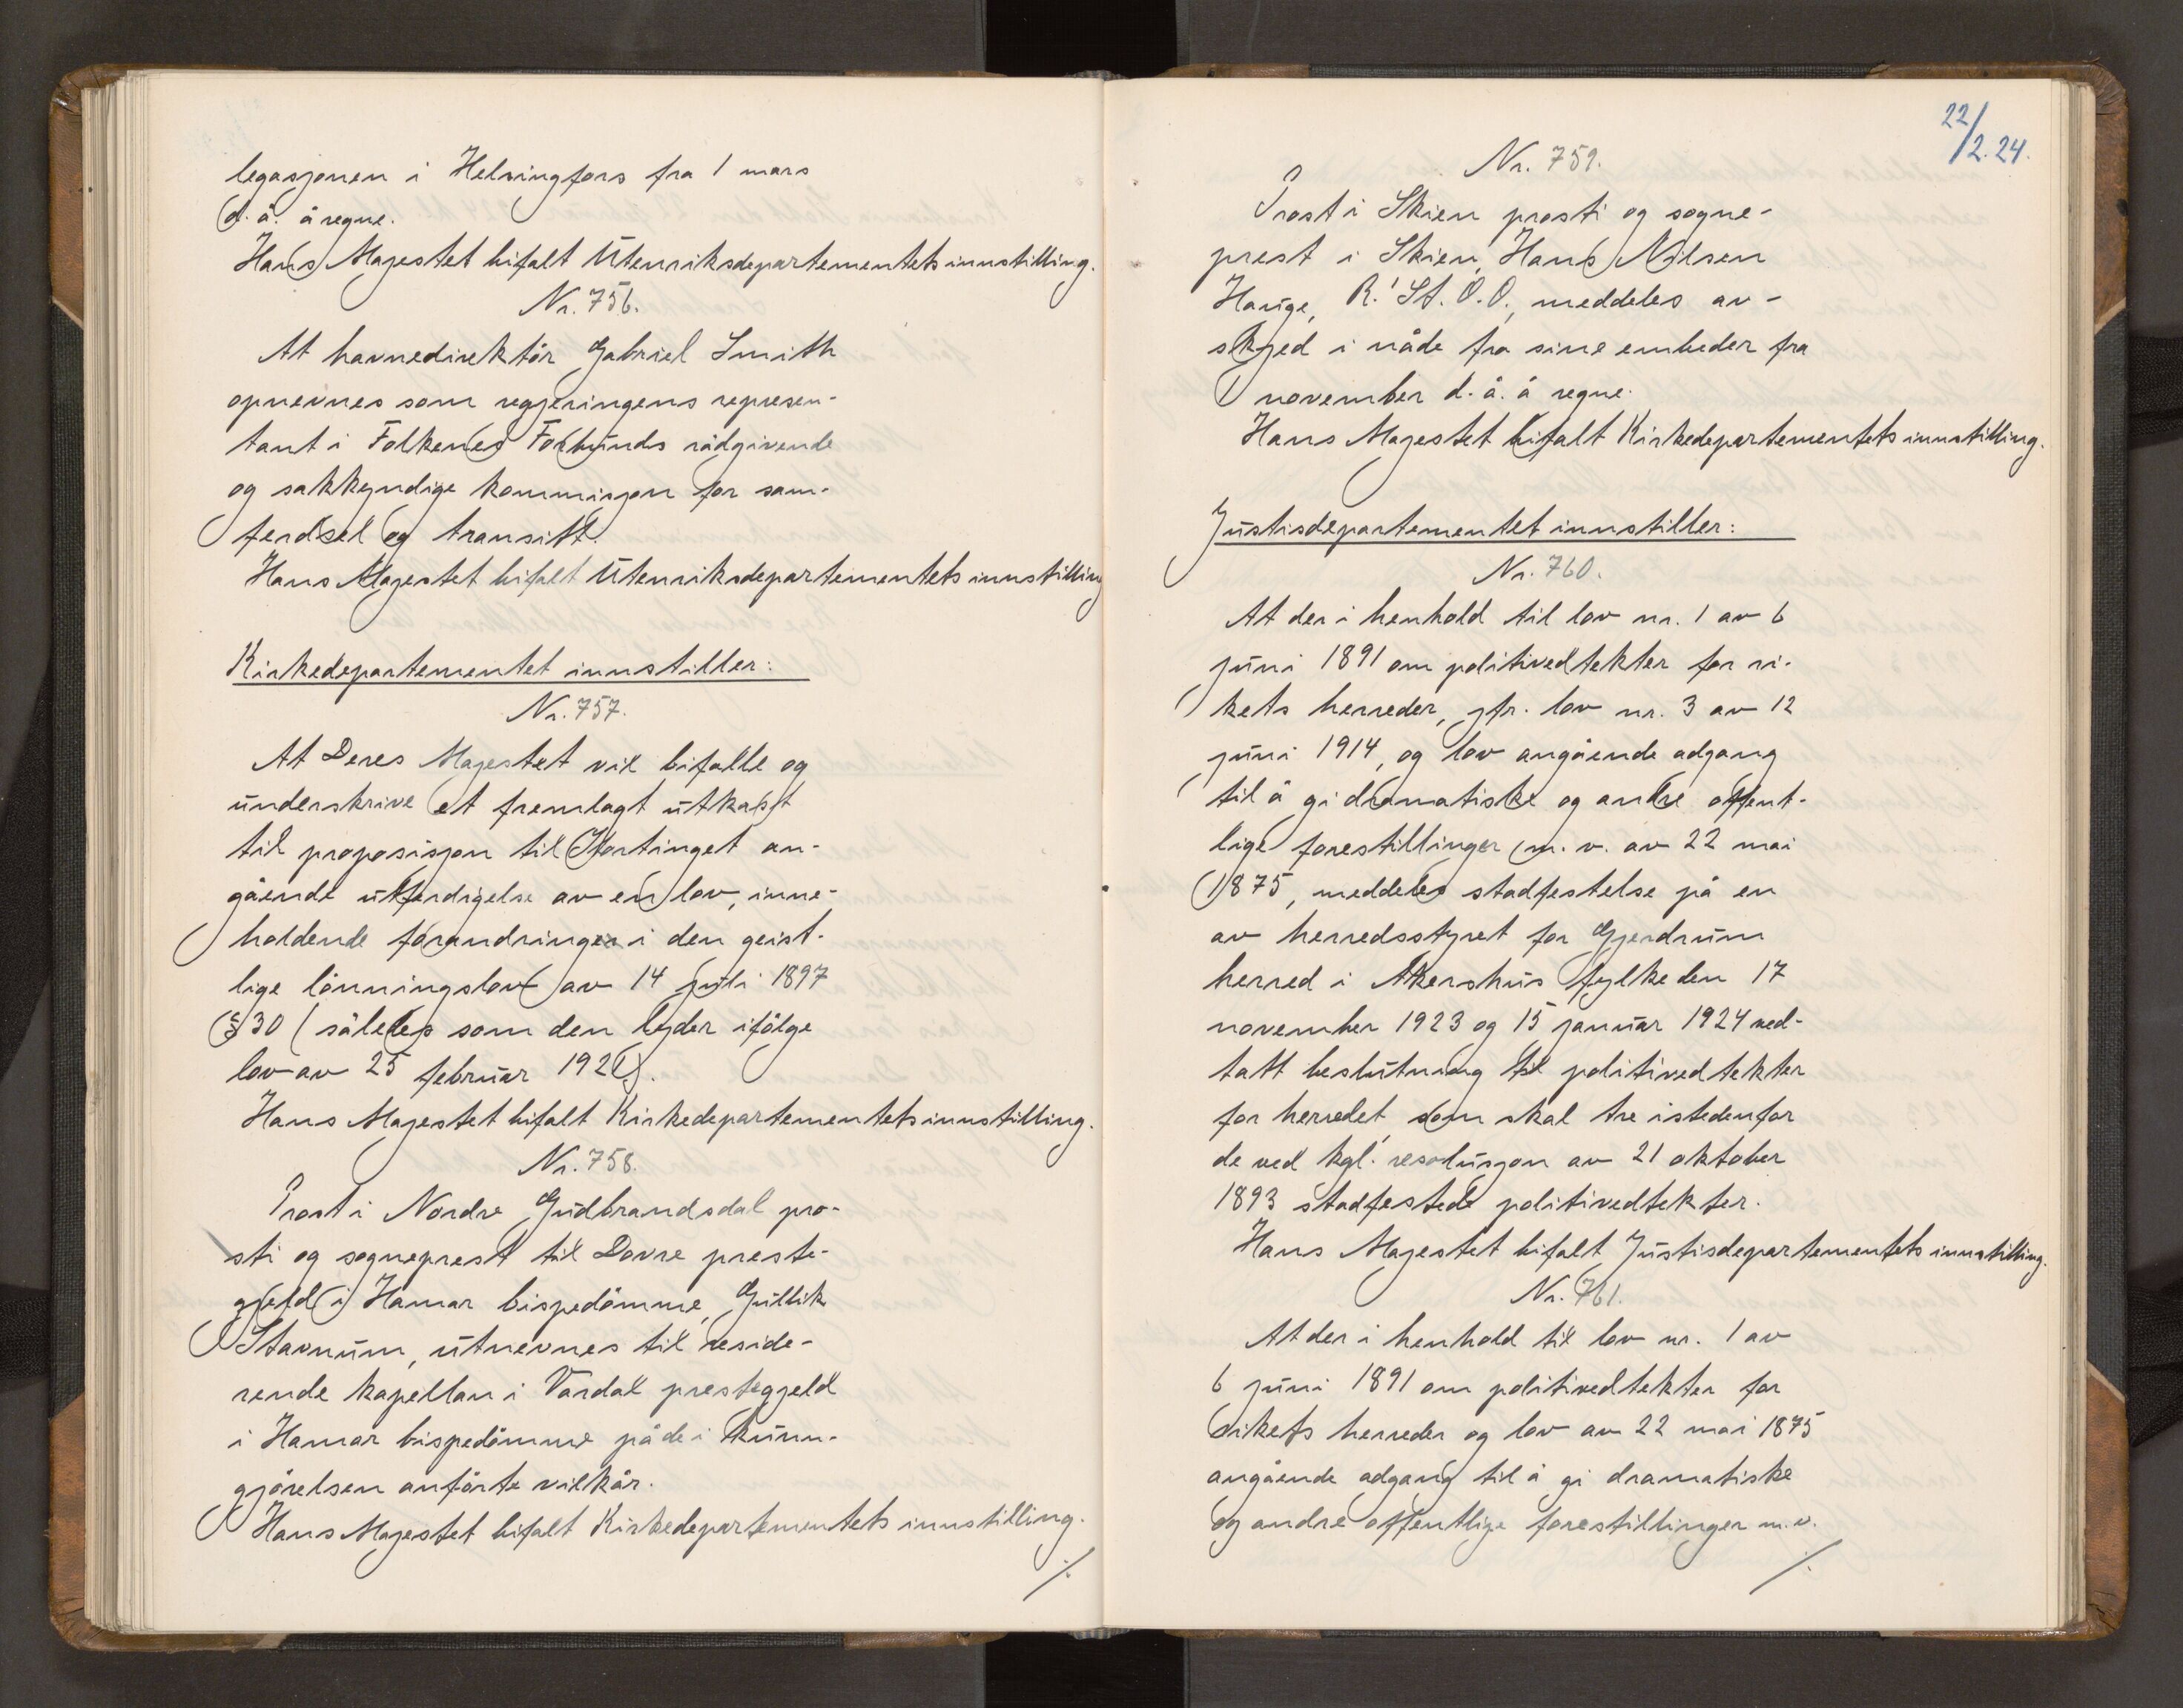 legasjonen i Helsingfors fra 1 mars
d. å. å regne.
Hans Majestet bifalt Utenriksdepartementets innstilling.
Nr. 756.
At havnedirektör Gabriel Smith
opnevnes som regjeringens represen-
tant i Folkenes Forbunds rådgivende
og sakkyndige kommisjon for sam-
ferdsel og transitt.
Hans Majestet bifalt Utenriksdepartementets innstilling
Kirkedepartementet innstiller:
Nr. 757.
At Deres Majestet vil bifalle og
underskrive et fremlagt utkast
til proposisjon til Stortinget an-
gående utferdigelse av en lov, inne-
holdende forandringer i den geist-
lige lönningslov av 14 juli 1897
§ 30 (således som den lyder ifölge
lov av 25 februar 1921).
Hans Majestet bifalt Kirkedepartementets innstilling.
Nr. 758.
Prost i Nordre Gudbrandsdal pro-
sti og sogneprest til Dovre preste-
gjeld i Hamar bispedömme, Gullik
Stavnum, utnevnes til reside-
rende kapellan i Vardal prestegjeld
i Hamar bispedömme på de i kunn-
gjörelsen anförte vilkår.
Hans Majestet bifalt Kirkedepartementets innstilling.
./.
22/2. 24.
Nr. 759.
Prost i Skien prosti og sogne-
prest i Skien, Hans Nilsen
Hauge, R.¹ St. O. O., meddeles av-
skjed i nåde fra sine embeder fra
1 november d. å. å regne.
Hans Majestet bifalt Kirkedepartementets innstilling.
Justisdepartementet innstiller:
Nr. 760.
At der i henhold til lov nr. 1 av 6
juni 1891 om politivedtekter for ri-
kets herreder, jfr. lov nr. 3 av 12
juni 1914, og lov angående adgang
til å gi dramatiske og andre offent-
lige forestillinger m. v. av 22 mai
1875, meddeles stadfestelse på en
av herredsstyret for Gjerdrum
herred i Akershus fylke den 17
november 1923 og 15 januar 1924 ved-
tatt beslutning til politivedtekter
for herredet, som skal tre istedenfor
de ved kgl. resolusjon av 21 oktober
1893 stadfestede politivedtekter.
Hans Majestet bifalt Justisdepartementets innstilling.
Nr. 761.
At der i henhold til lov nr. 1 av
6 juni 1891 om politivedtekter for
rikets herreder og lov av 22 mai 1875
angående adgang til å gi dramatiske
og andre offentlige forestillinger m. v.
./.